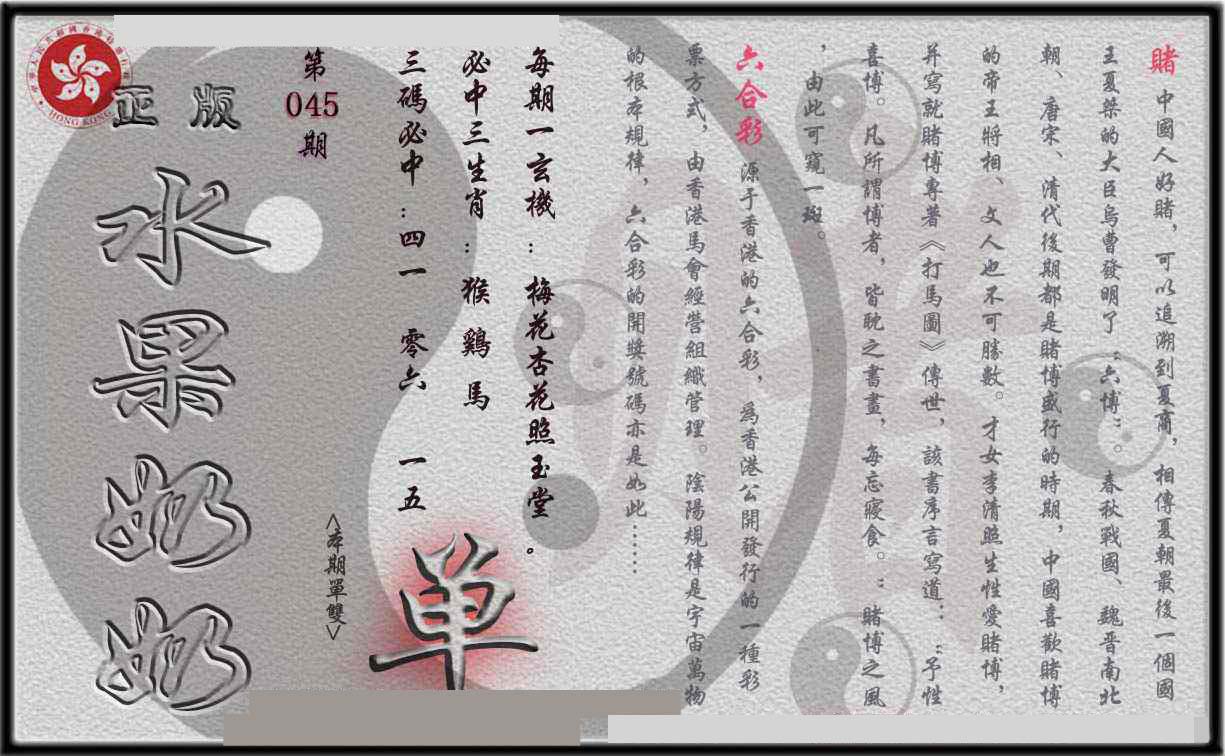 賭 中國人好賭，可以追溯到夏商，相傳夏朝最後一個國
王夏桀的大臣烏曹發明了“六博”。春秋戰國、魏晋南北
朝、唐宋、清代後期都是賭博盛行的時期，中國喜歡賭博
的帝王將相、文人也不可勝數。才女李清照生性愛賭博，
并寫就賭博專著《打馬圖》傳世，該書序言寫道：“予性
喜博。凡所謂博者，皆耽之書畫，每忘寢食。”賭博之風
，由此可窺一斑。
六合彩 源于香港的六合彩，爲香港公開發行的一種彩
票方式，由香港馬會經營組織管理。陰陽規律是宇宙萬物
的根本規律，六合彩的開獎號碼亦是如此……
每期一玄機：梅花杏花照玉堂。
必中三生肖：猴 鷄 馬
三碼必中：四一 零六 一五
<本期單雙>
单
第
045
期
正版
水果奶奶
HONG KONG